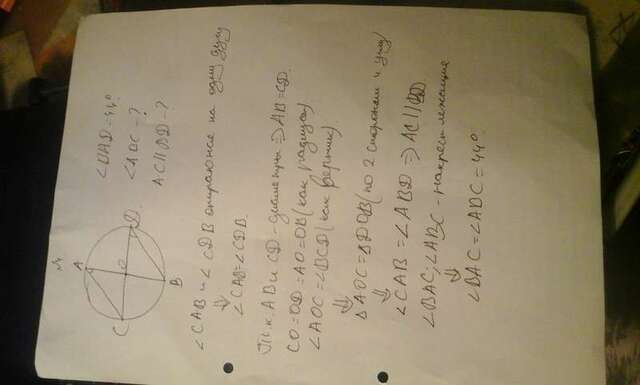 ∠BAD=44°.
∠ADC-?
AC∥BD-?
A
D
O
C
B
∠CAB и ∠CDB опираются на одну дугу
⇓
∠CAB=∠CDB.
Т.к. AB и CD - диаметры ⇒ AB=CD.
CO=OD=AO=OB (как радиусы)
∠AOC=∠BOD (как вертик).
⇓
△AOC=△DOB (по 2 сторонам и углу)
⇓
∠CAB=∠ABD ⇒ AC∥BD
∠BAC; ∠ABC - накрест лежащие
⇓
∠BAC=∠ADC=44°